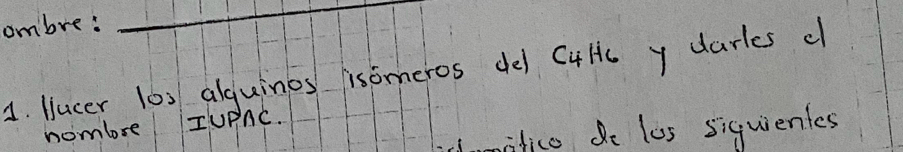 ombre:
1. Hacer los alquinos isómeros del C4H6 y darles el
nombre IUPAC.
de los siguientes